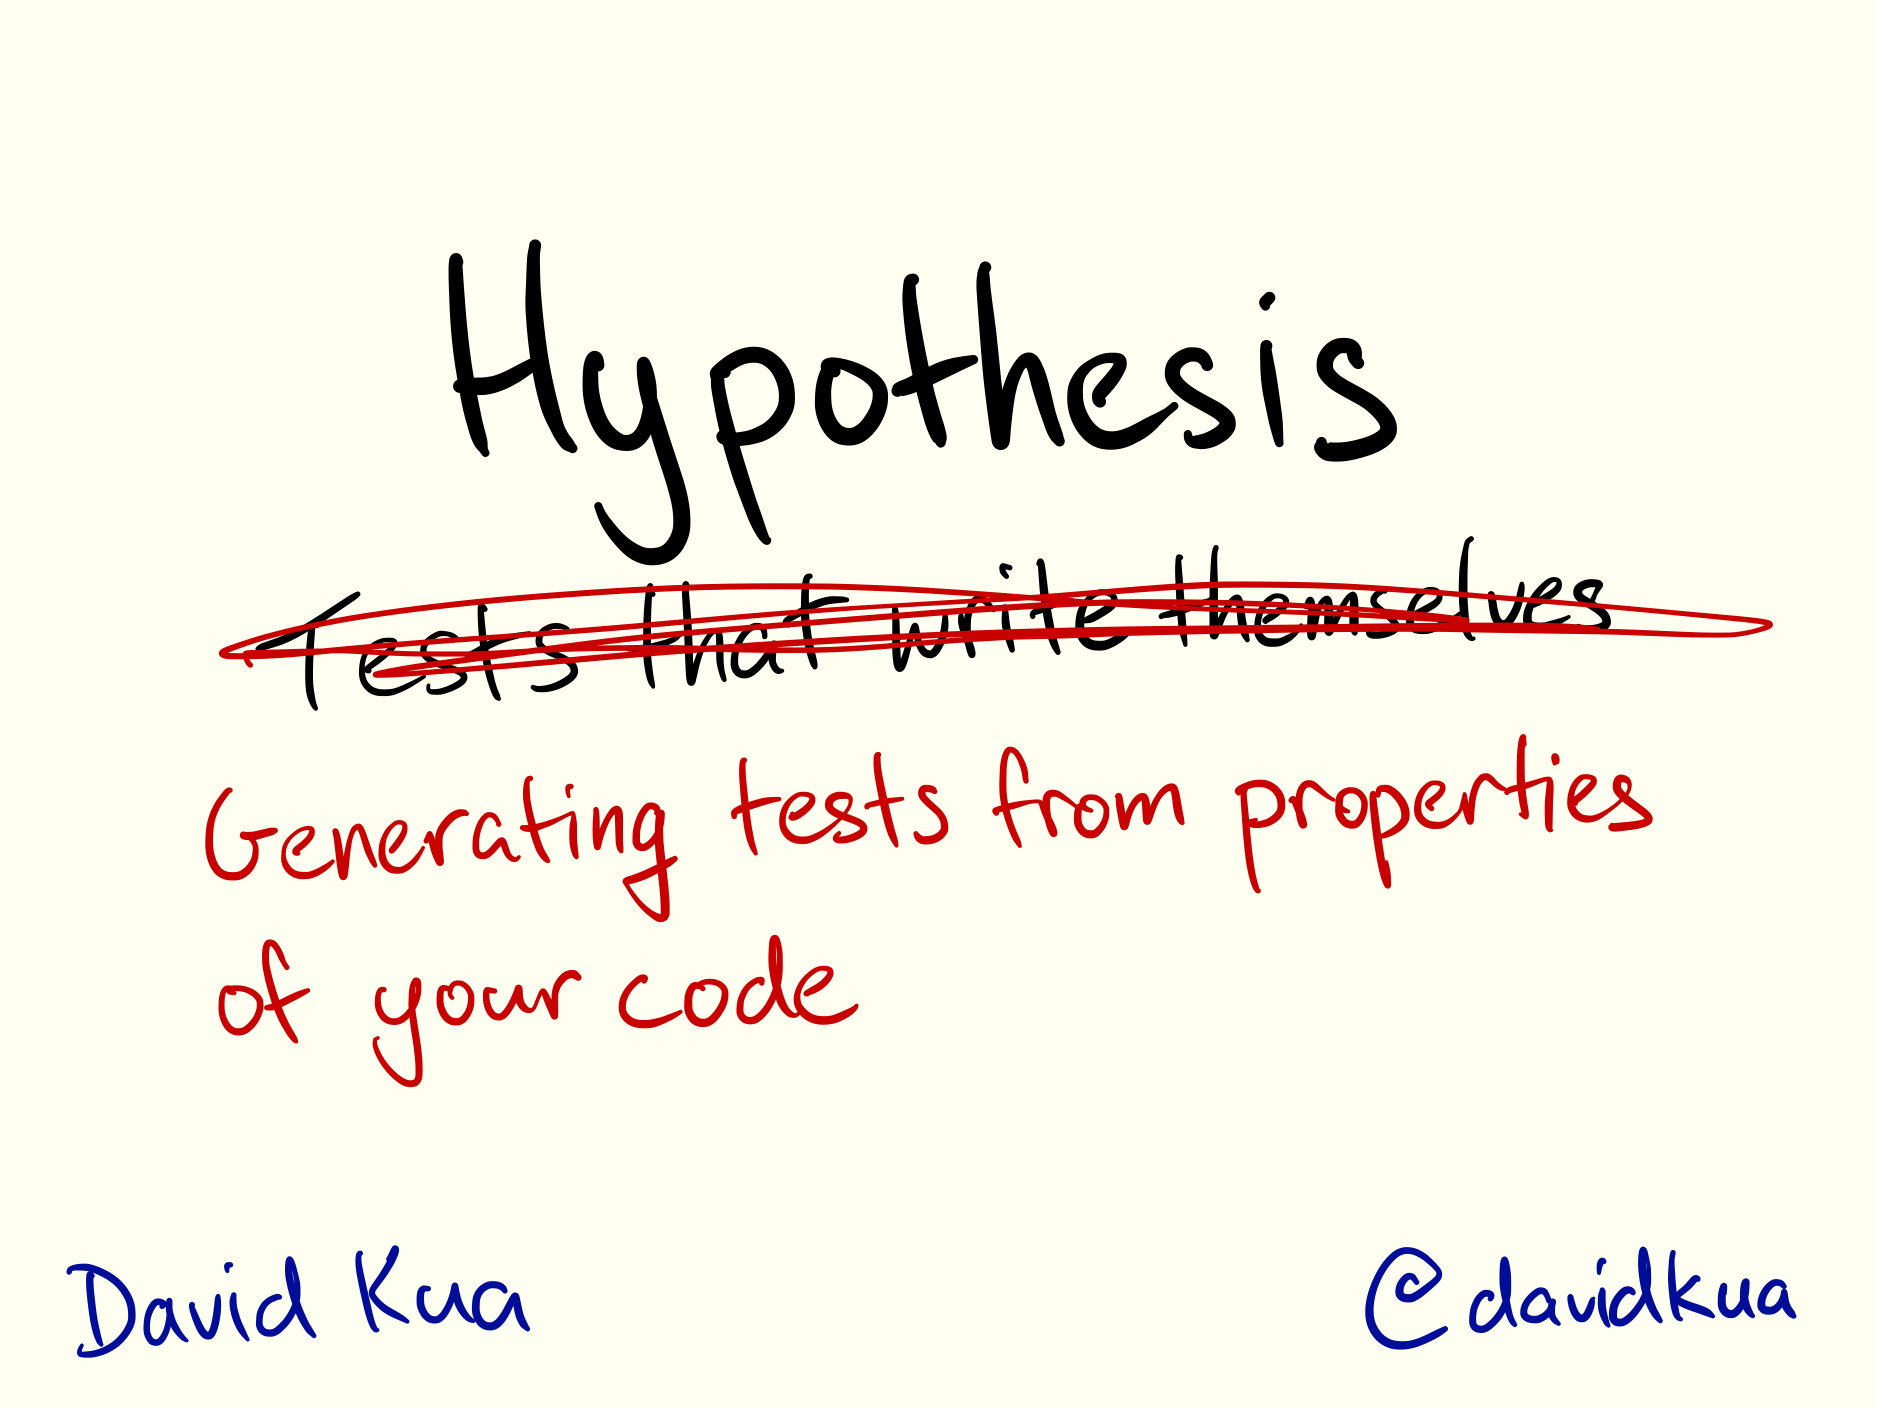 Hypothesis
Tests that write themselves
Generating tests from properties
of your code
David Kua
@davidkua